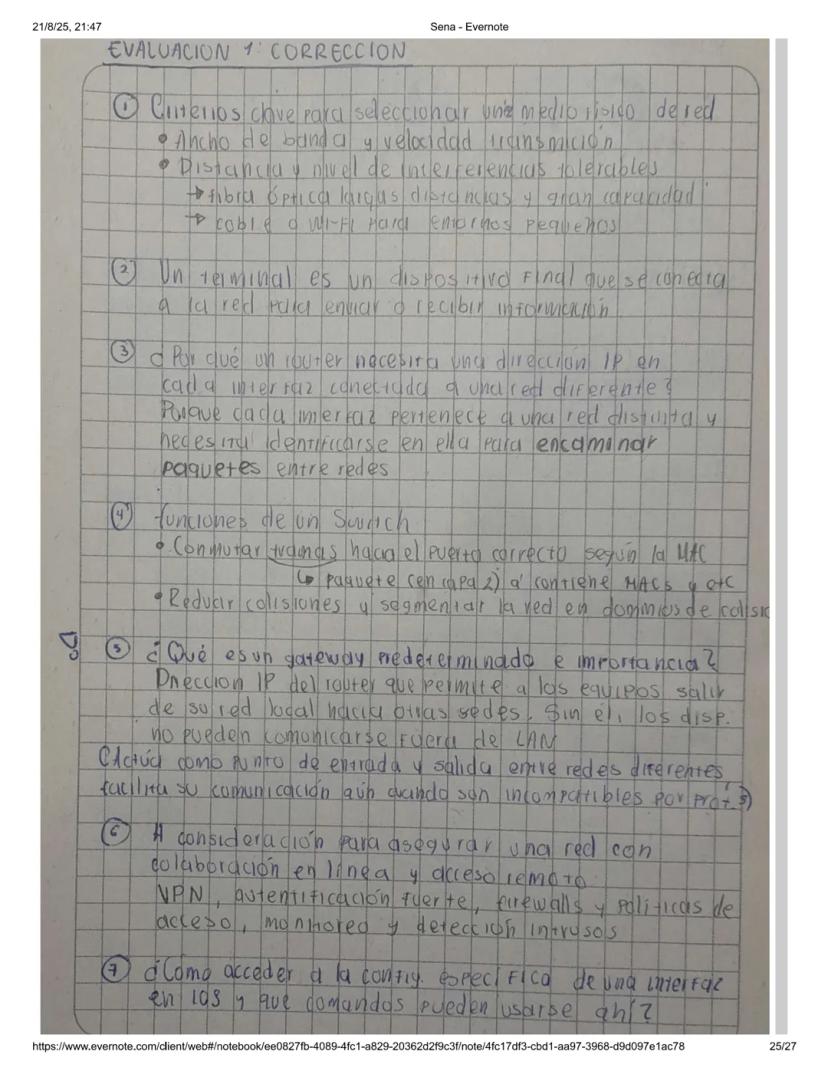 21/8/25, 21:47
Sena - Evernote
EVALUACION 1: CORRECCION
① Criterios clave para seleccionar un medio físico de red
• Ancho de banda y velocidad transmición
• Distancia y nivel de interferencias tolerables
→ fibra óptica largas distancias y gran capacidad
→ cable o Wi-Fi para entornos pequeños
② Un terminal es un dispositivo final que se conecta
a la red para enviar o recibir información
③ ¿Por qué un router necesita una dirección IP en
cada interfaz conectada a una red diferente?
Porque cada interfaz pertenece a una red distinta y
necesita identificarse en ella para encaminar
paquetes entre redes
④ funciones de un Switch
• Conmutar tramas hacia el puerto correcto según la MAC
↳ paquete (en capa 2) q' contiene MACs y etc
• Reducir colisiones y segmentar la red en dominios de colisio
⑤ ¿Qué es un gateway predeterminado e importancia?
Dirección IP del router que permite a los equipos salir
de su red local hacia otras redes. Sin él, los disp.
no pueden comunicarse fuera de LAN
(Actúa como punto de entrada y salida entre redes diferentes,
facilita su comunicación aún cuando son incompatibles por prot.s)
⑥ A consideración para asegurar una red con
colaboración en línea y acceso remoto
VPN, autentificación fuerte, firewalls y políticas de
acceso, monitoreo y detección intrusos
⑦ ¿Cómo acceder a la config. específica de una interfaz
en IOS y que comandos pueden usarse ahí?
https://www.evernote.com/client/web#/notebook/ee0827fb-4089-4fc1-a829-20362d2f9c3f/note/4fc17df3-cbd1-aa97-3968-d9d097e1ac78
25/27